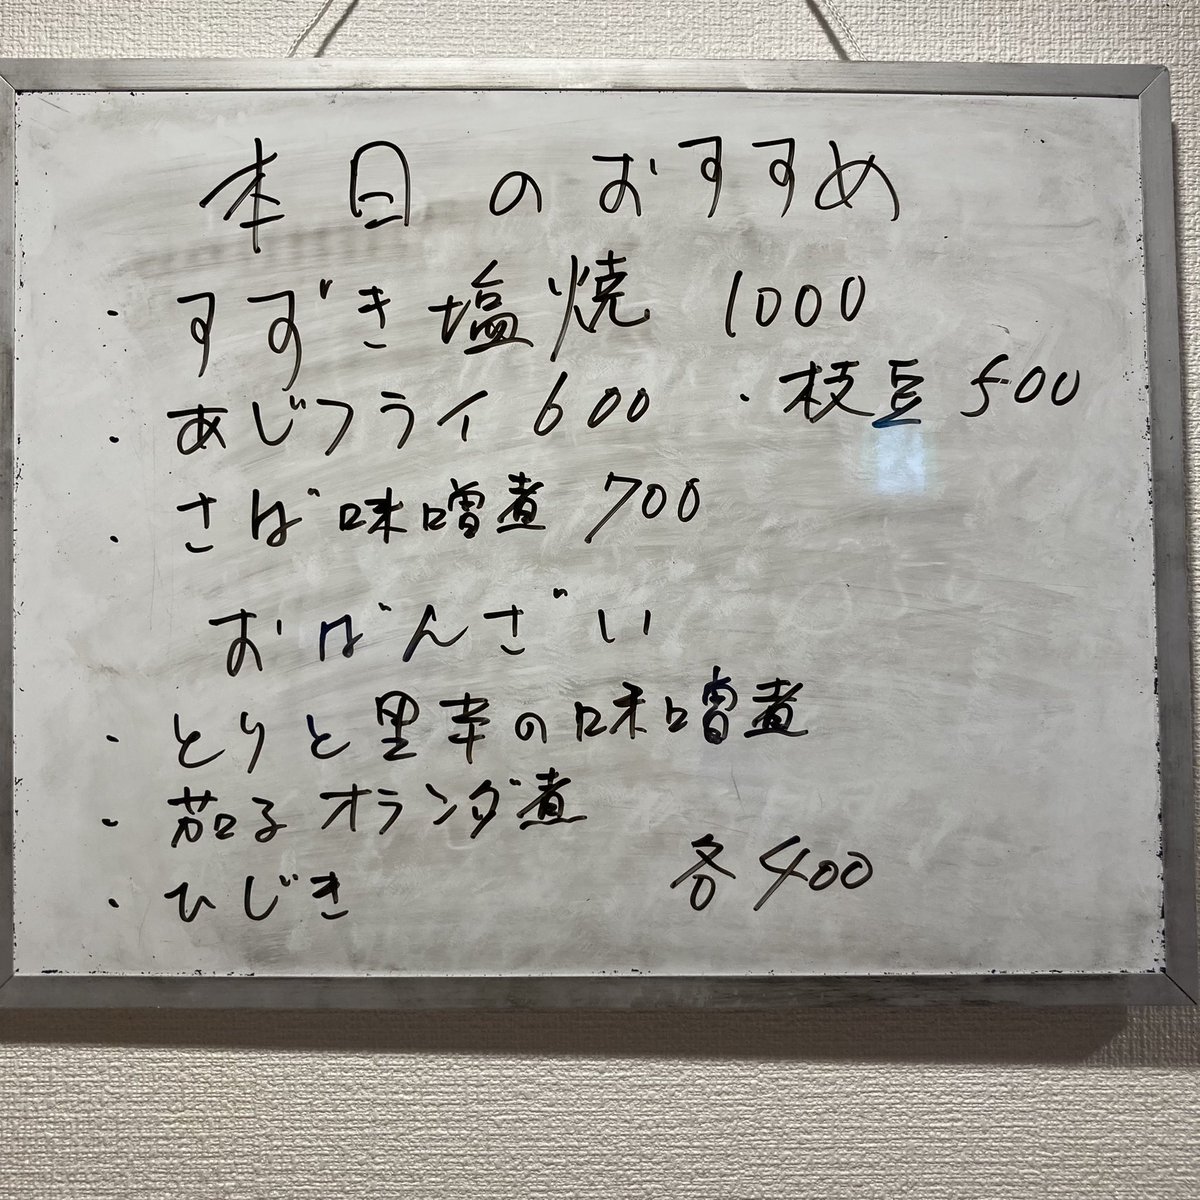 本日のおすすめ
・すずき塩焼 1000
・あじフライ 600 ・枝豆 500
・さば味噌煮 700
おばんざい
・とりと里芋の味噌煮
・茄子オランダ煮
・ひじき 各400